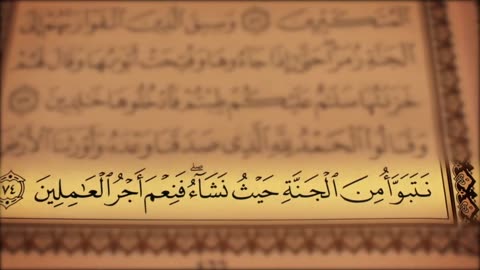 ٱلْمُتَكَبِّرِينَ ٧٢ وَسِيقَ ٱلَّذِينَ ٱتَّقَوْا۟ رَبَّهُمْ إِلَى
ٱلْجَنَّةِ زُمَرًا حَتَّىٰٓ إِذَا جَآءُوهَا وَفُتِحَتْ أَبْوَٰبُهَا وَقَالَ لَهُمْ
خَزَنَتُهَا سَلَٰمٌ عَلَيْكُمْ طِبْتُمْ فَٱدْخُلُوهَا خَٰلِدِينَ ٧٣
وَقَالُوا۟ ٱلْحَمْدُ لِلَّهِ ٱلَّذِى صَدَقَنَا وَعْدَهُۥ وَأَوْرَثَنَا ٱلْأَرْضَ
نَتَبَوَّأُ مِنَ ٱلْجَنَّةِ حَيْثُ نَشَآءُ ۖ فَنِعْمَ أَجْرُ ٱلْعَٰمِلِينَ ٧٤